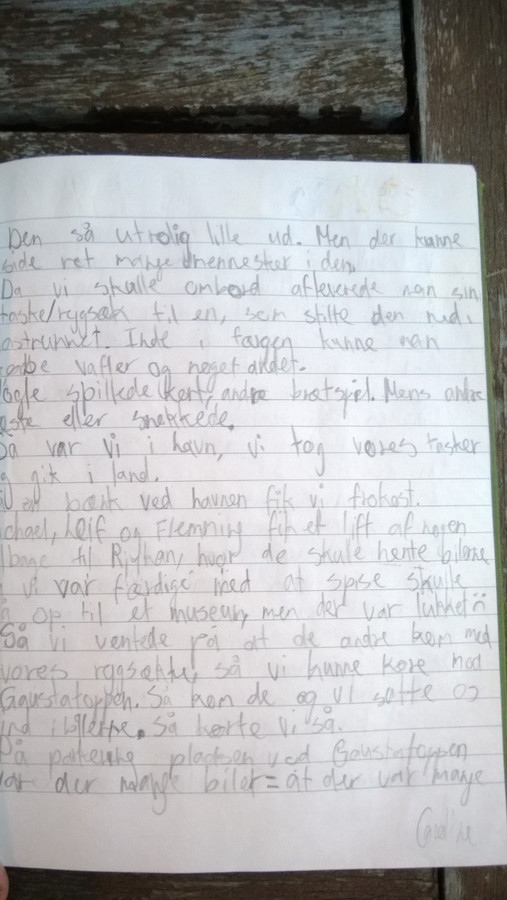 Den så utrolig lille ud. Men der kunne
side ret mange mennesker i den.
Da vi skulle ombord afleverede man sin
taske/rygsæk til en, som stilte den ned i
lastrummet. Inde i færgen kunne man
købe vafler og noget andet.
Nogle spillede kort, andre brætspil. Mens andre
læste eller snakkede.
Så var vi i havn, vi tog vores tasker
og gik i land.
bænk ved havnen fik vi frokost.
chael, Leif og Flemning fik et lift af nogen
tilbage til Rjukan, hvor de skulle hente bilerne
vi var færdige med at spise skulle
op til et museum, men der var lukket
Så vi ventede på at de andre kom med
vores rygsække, så vi kunne køre mod
Gaustatoppen. Så kom de og vi satte os
ind i bilerne. Så kørte vi så.
På parkerings pladsen ved Gaustatoppen
var der mange biler = at der var mange
Caroline